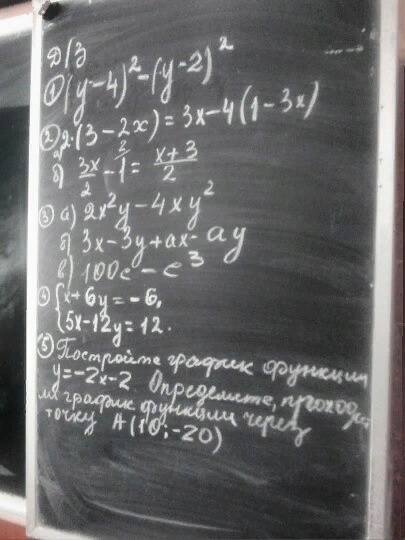 Д/З
① (y-4)² - (y-2)²
② а) 2·(3-2x) = 3x-4(1-3x)
б) 3x/2 - 1 = x+3/2
③ а) 2x²y - 4xy²
б) 3x - 3y + ax - ay
в) 100c - c³
④ { x + 6y = -6,
5x - 12y = 12.
⑤ Постройте график функции
y = -2x - 2 Определите, проход
ли график функции через
точку A(10; -20)